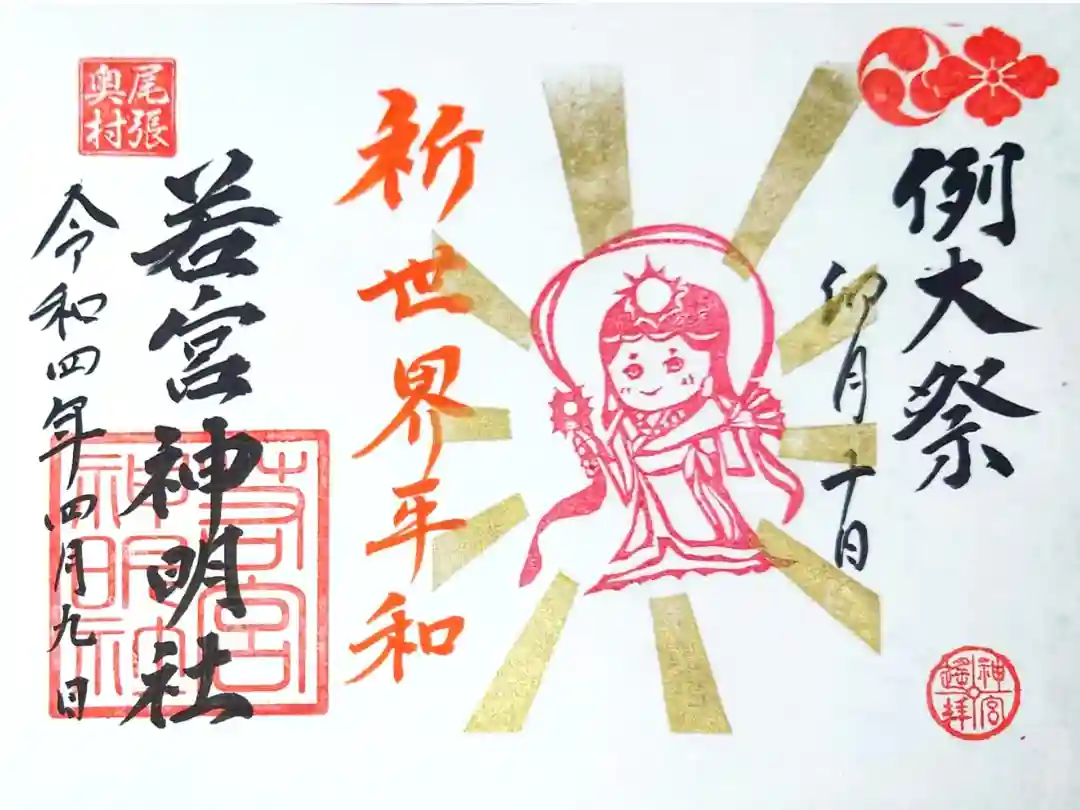 例大祭
卯月十日
祈世界平和
若宮神明社
令和四年四月九日
尾張
奥村
神宮
遥拝
若宮
神明社